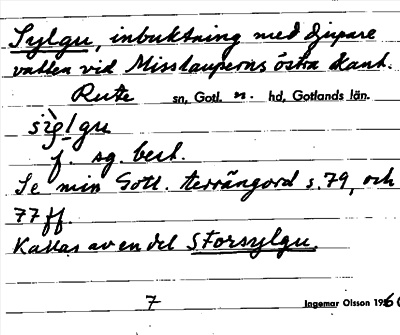 Sylgu, inbuktning med djupare
vatten vid Misslauperns östra kant.
Rute sn, Gotl. n. hd, Gotlands län.
sìlgu
f. sg. best.
Se min Gotl. terrängord s. 79, och
77 ff.
Kallas av en del Storsylgu.
7 Ingemar Olsson 1960